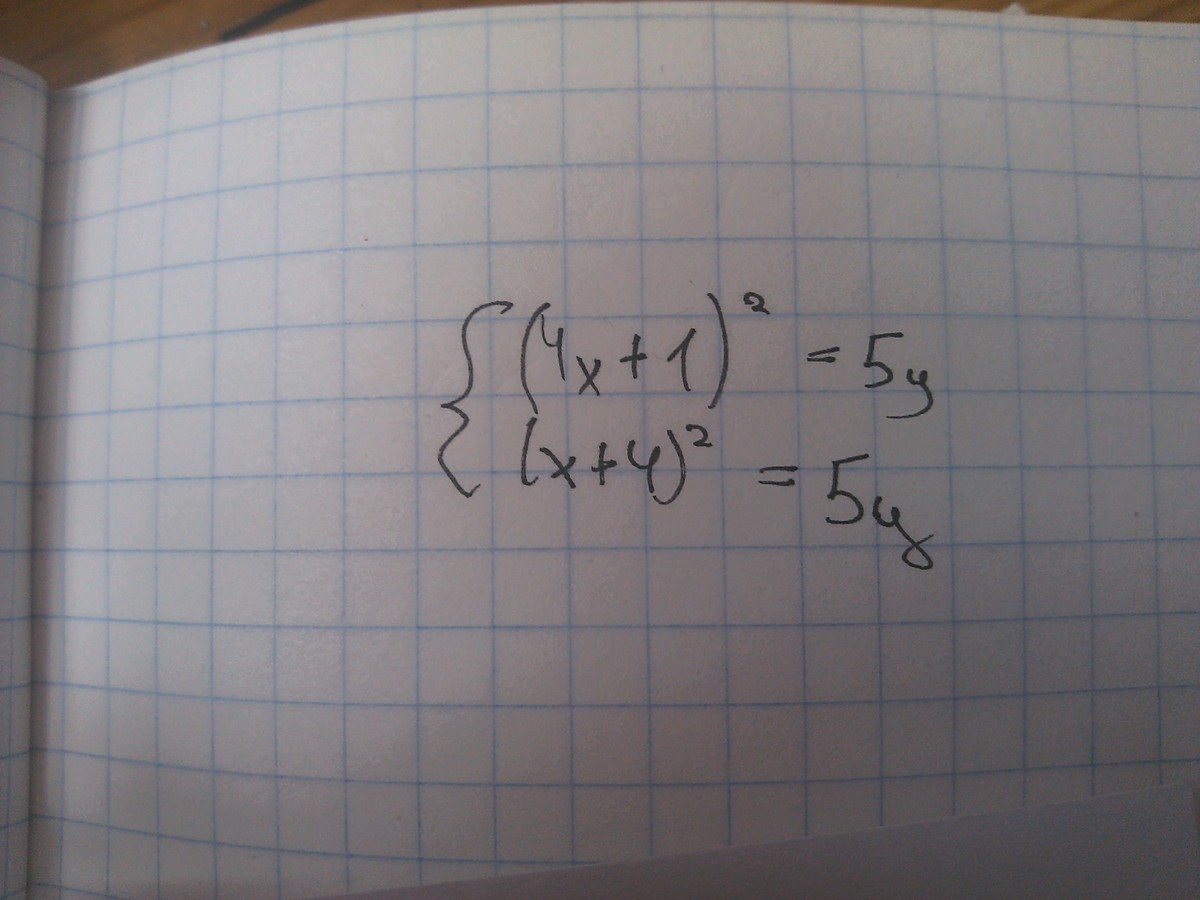 { (4x+1)² = 5y
(x+4)² = 5y